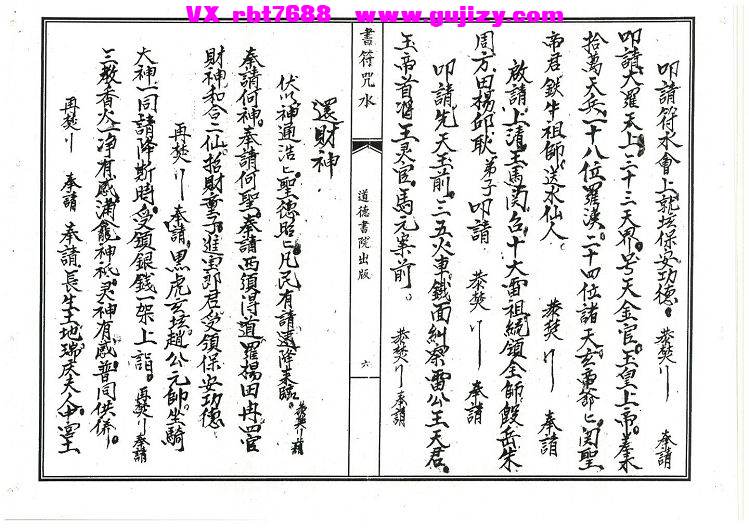 VX rbt7688 www.gujizy.com
叩請符水會上就壇保安功德。恭焚川 奉請
叩請大羅天上三十三天界。号天金官。玉皇上帝。羣末
拾萬天兵。一十八位羅漢。二十四位諸天。玄
帝君鉄牛祖師。送水仙人。恭焚川 奉請
啟請上清王馬関召。十大雷祖統領全師。殷岳朱
周方田楊邱耿。弟子叩請 恭焚川 奉請
叩請先天玉前。三五火車。鐵面糾察。雷公王天君。
玉帝首將王灵官。馬元案前。恭焚川 奉請
書符咒水
道德書院出版
六
還財神
伏以神通浩匕。聖德昭匕。凡民有請。速降來臨。恭焚川 請
奉請何神。奉請何聖。奉請西須得道羅楊田冉四官
財神。和合二仙。招財童子。進宝郎君。受領保安功德
再焚川 奉請。黑虎玄坛趙公元帥。坐騎
大神一同請降。斯時受領銀錢一架上詣。再焚川 奉請
三教香火一净有感。滿龕神祇。灵神有感。普同供养。
再焚川 奉請 奉請長生土地。瑞庆夫人。中宮土